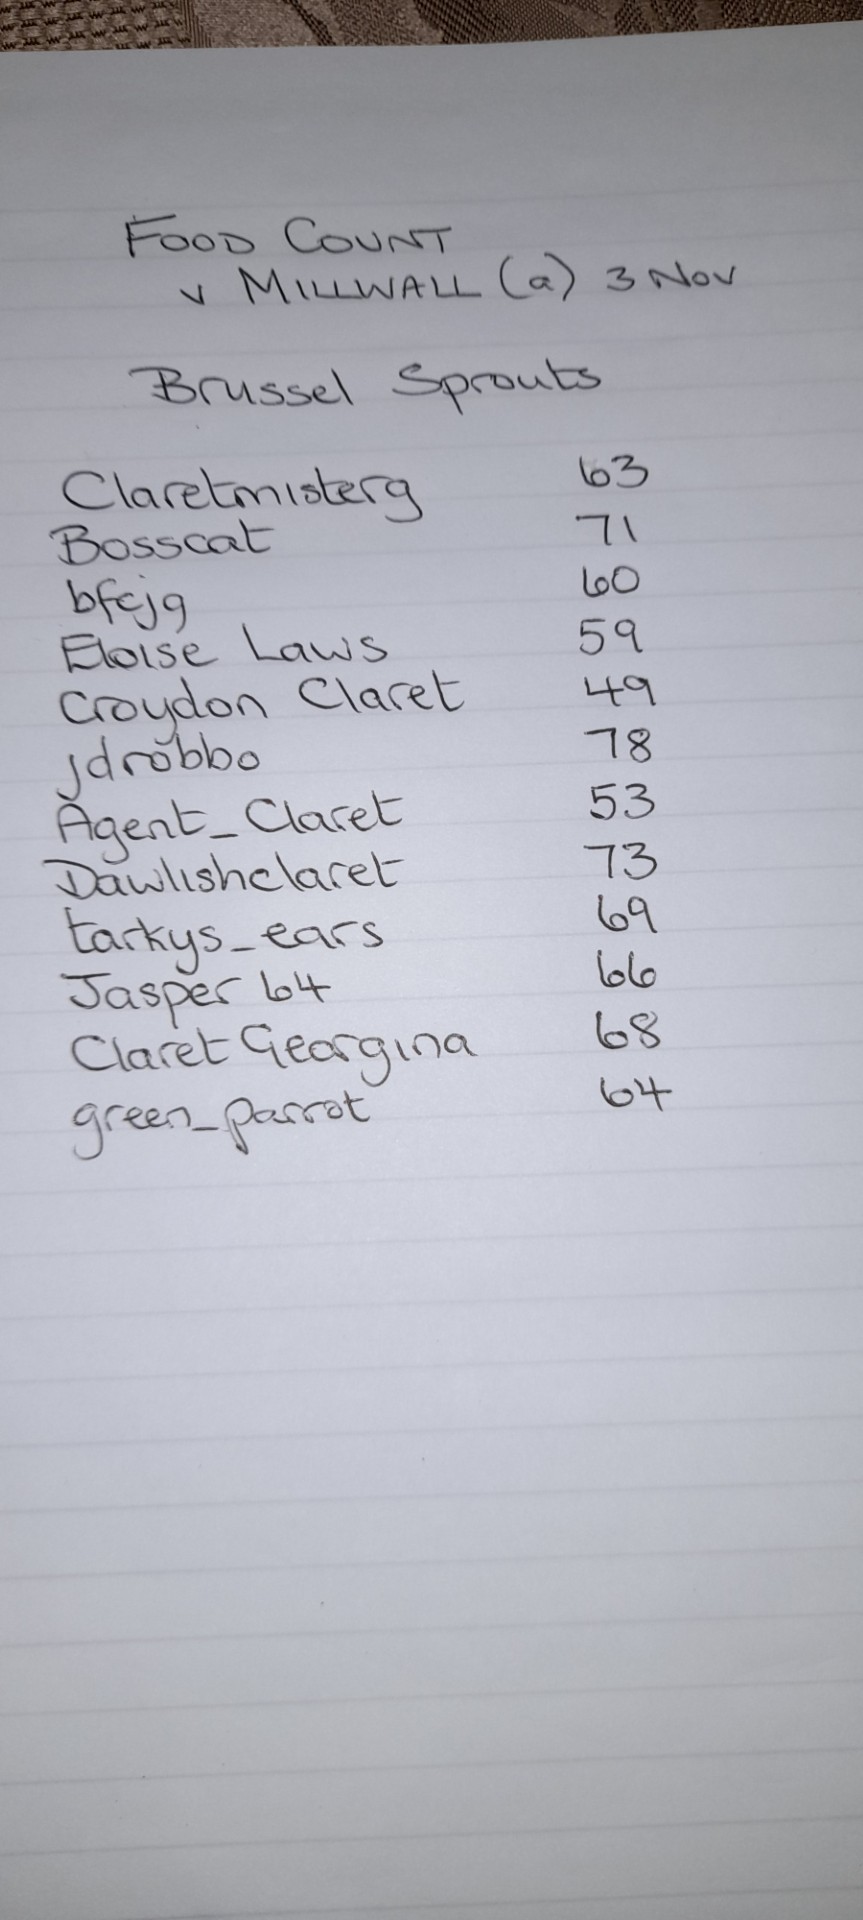 FOOD COUNT
v MILLWALL (a) 3 Nov
Brussel Sprouts
Claretmisterg 63
Bosscat 71
bfcjg 60
Eloise Laws 59
Croydon Claret 49
jdrobbo 78
Agent_Claret 53
Dawlishclaret 73
tarkys_ears 69
Jasper 64 66
Claret Georgina 68
green_parrot 64